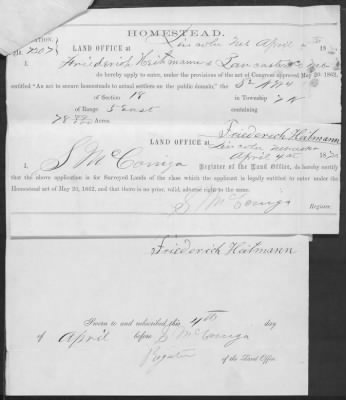 HOMESTEAD.
LAND OFFICE at Lincoln Neb April
No. 7207
I, Friederich Heitmann of Lancaster Co
do hereby apply to enter, under the provisions of the act of Congress approved May 20, 1862,
entitled "An act to secure homesteads to actual settlers on the public domain," the
of Section 18 in Township 7 N
of Range 5 East containing
Acres.
Friederich Heitmann
LAND OFFICE at Lincoln Nebraska
April 4th
I, S McConiga Register of the Land Office, do hereby certify
that the above application is for Surveyed Lands of the class which the applicant is legally entitled to enter under the
Homestead act of May 20, 1862, and that there is no prior, valid adverse right to the same.
S McConiga
Register.
Friederich Heitmann
Sworn to and subscribed, this 4th day
of April before S McConiga
Register of the Land Office.